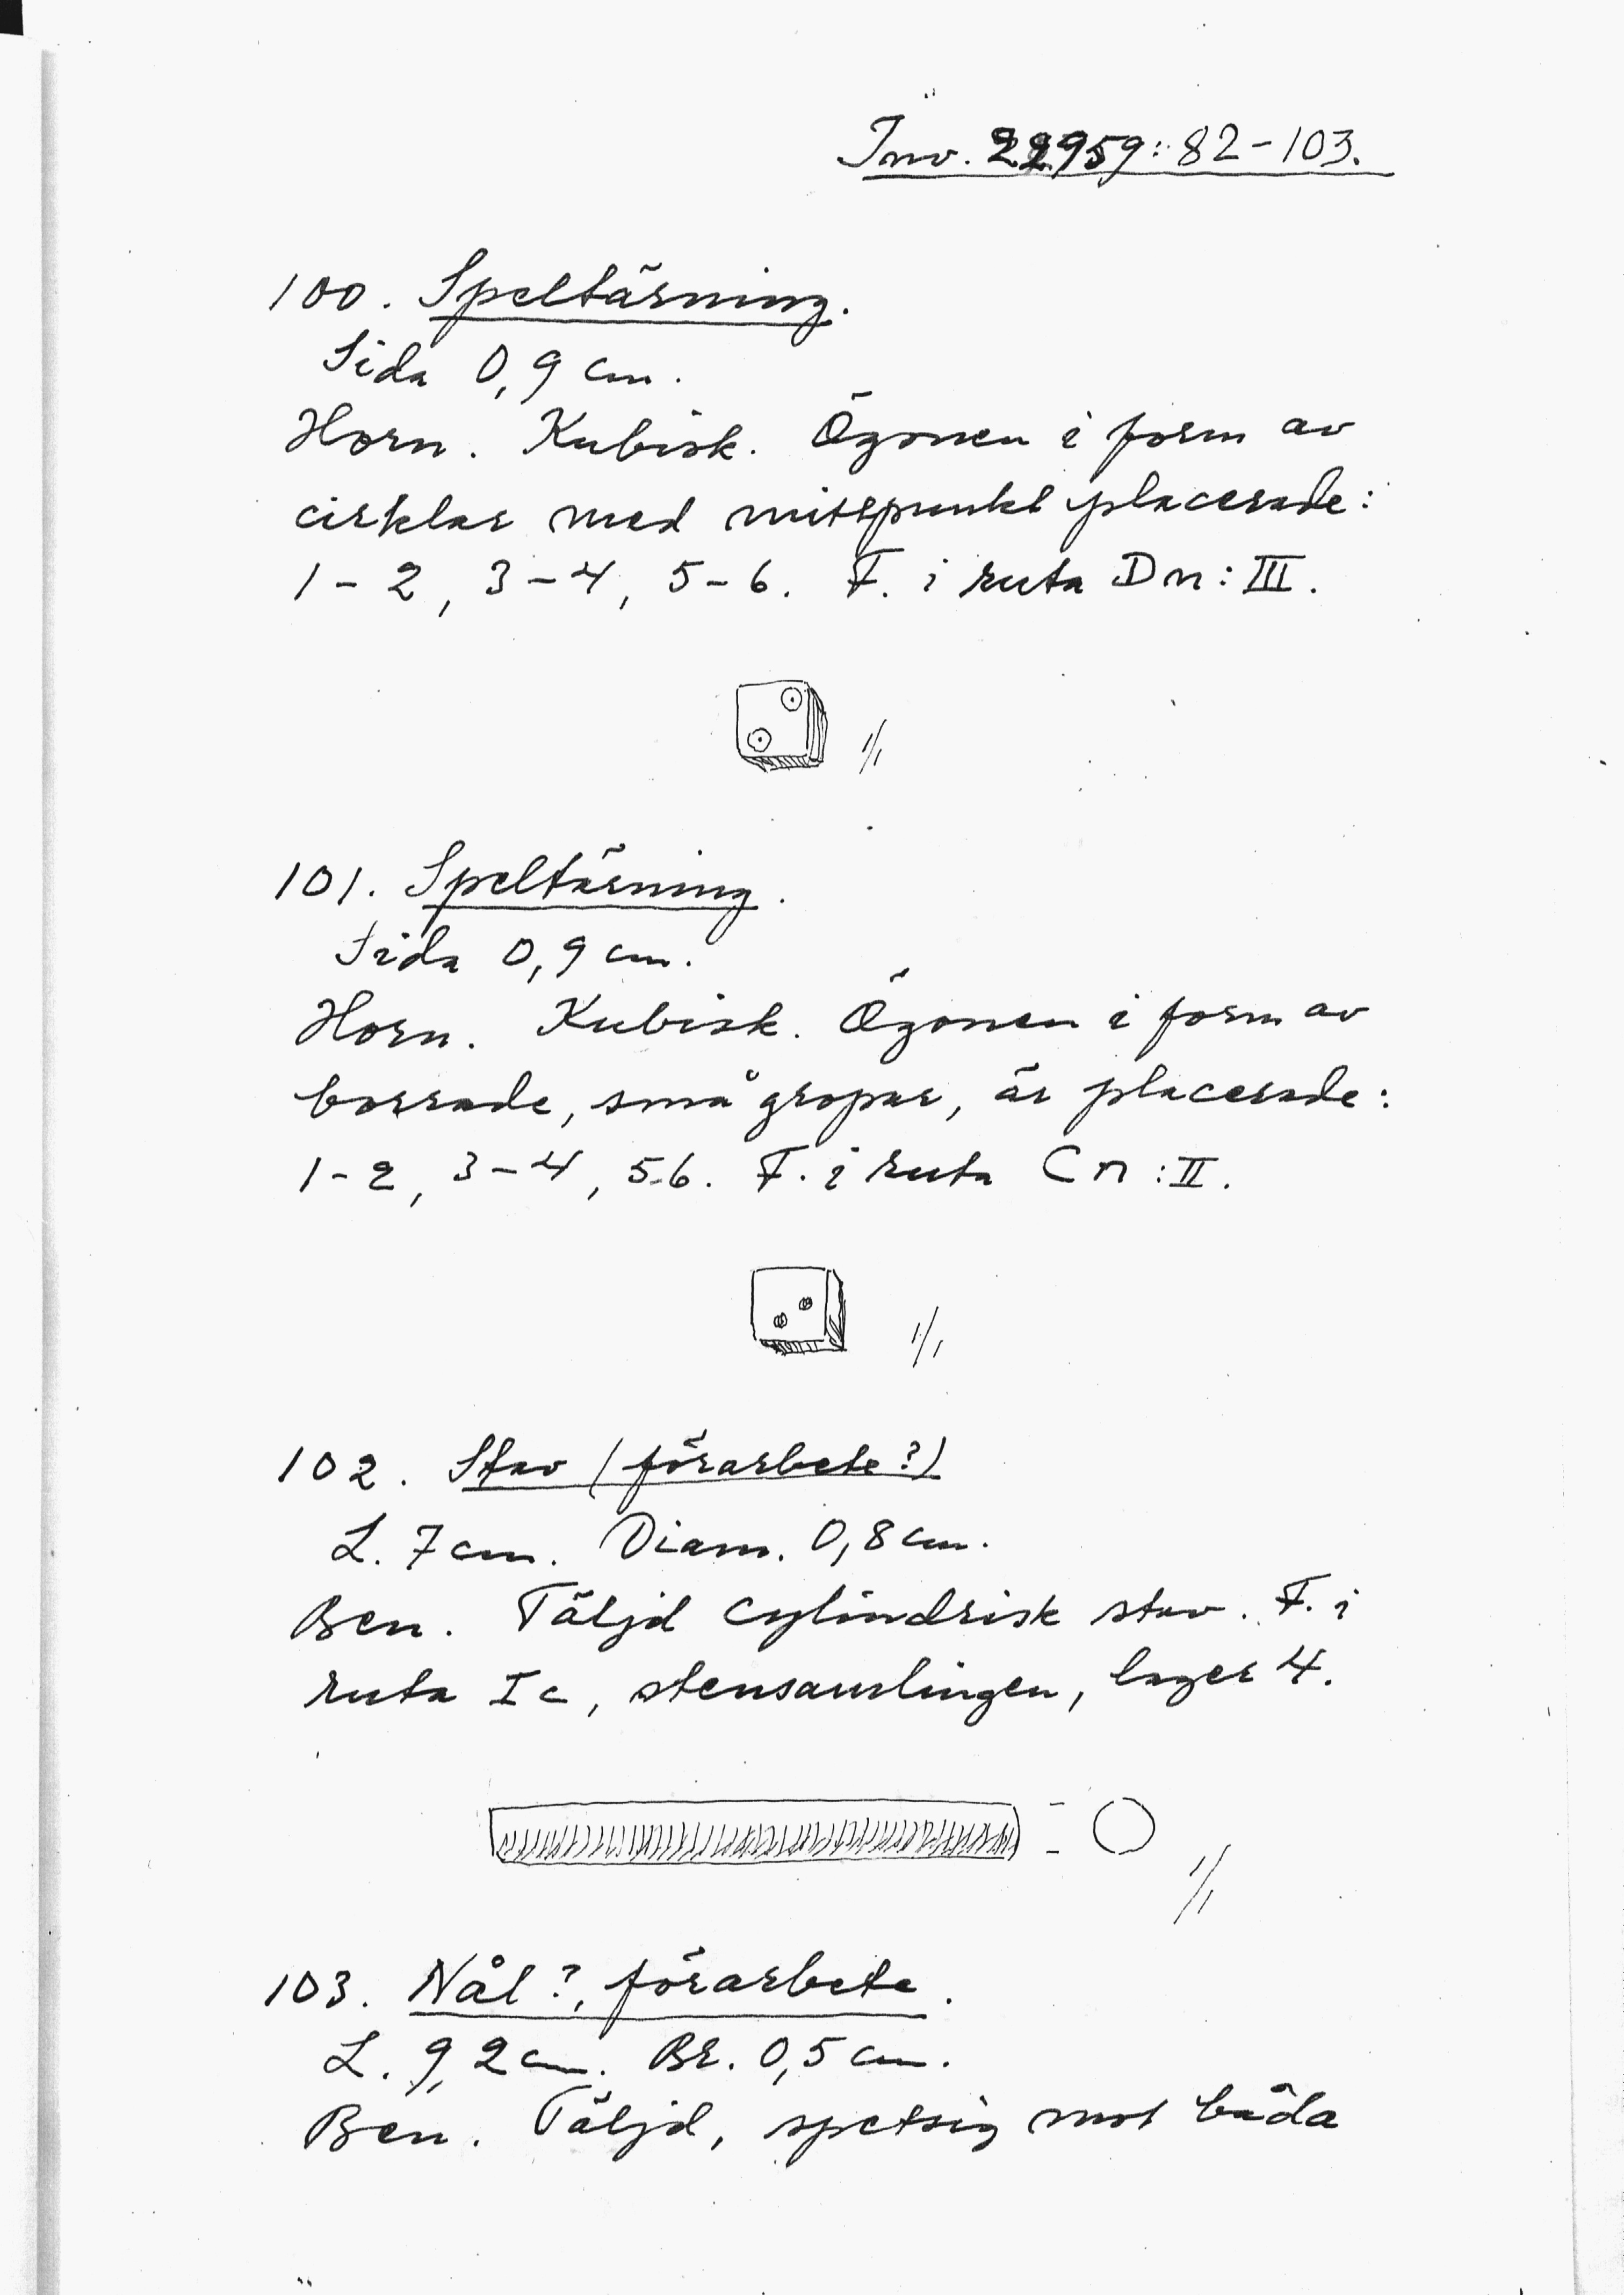 Inv. 22959:82-103.
100. Speltärning.
Sida 0,9 cm.
Horn. Kubisk. Ögonen i form av
cirklar med mittpunkt placerade:
1-2, 3-4, 5-6. F. i ruta Dn:III.
1/1
101. Speltärning.
Sida 0,9 cm.
Horn. Kubisk. Ögonen i form av
borrade, små gropar, är placerade:
1-2, 3-4, 5-6. F. i ruta Cn:II.
1/1
102. Stav (förarbete?)
L. 7 cm. Diam. 0,8 cm.
Ben. Täljd cylindrisk stav. F. i
ruta Ic, stensamlingen, lager 4.
1/1
103. Nål?, förarbete.
L. 9,2 cm. Br. 0,5 cm.
Ben. Täljd, spetsig mot båda